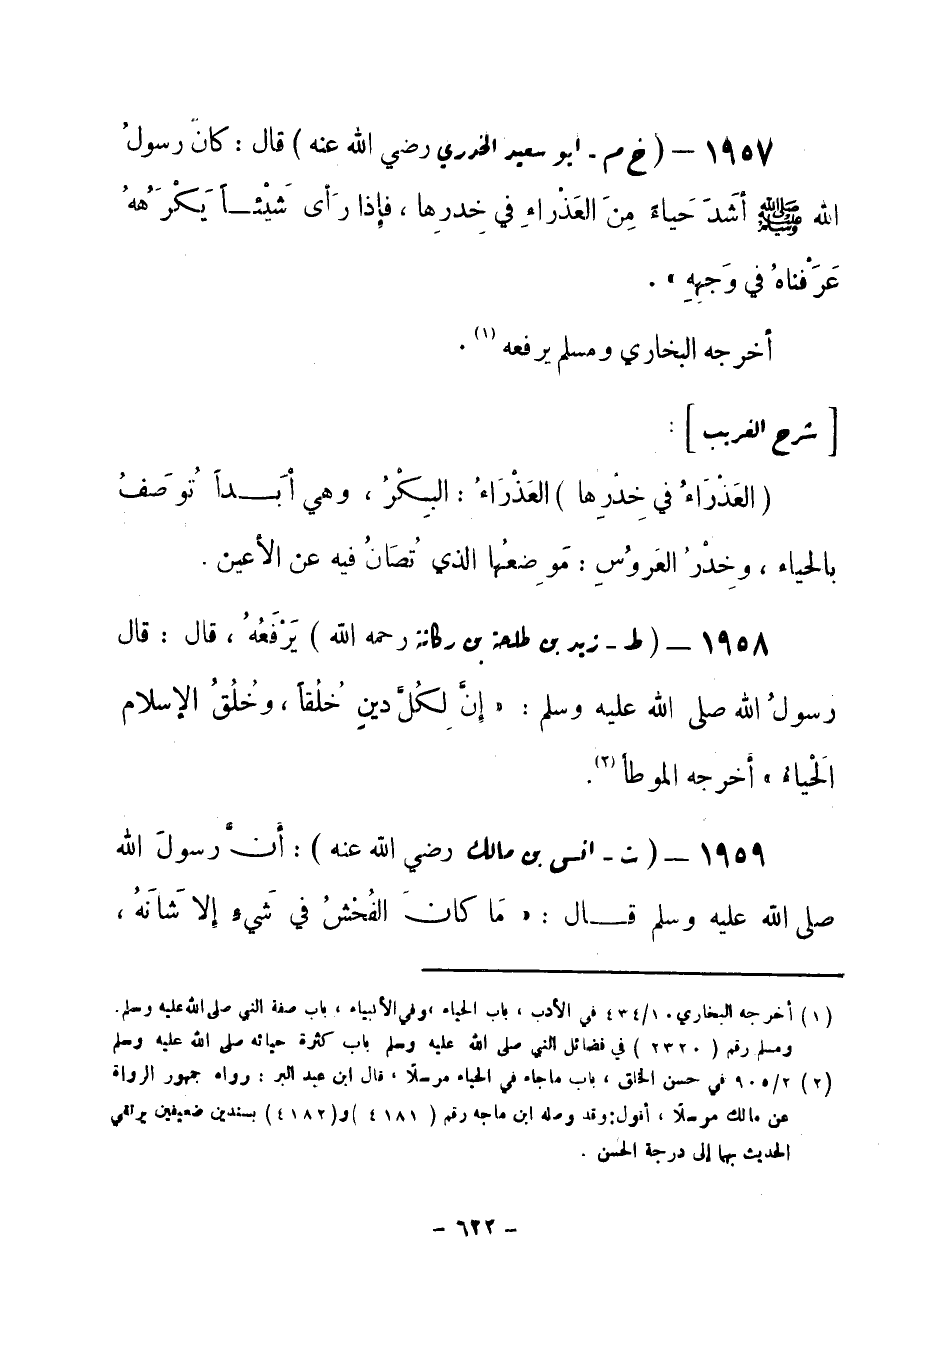 ١٩٥٧ – ( خ م - ابو سعيد الخدري رضي الله عنه ) قال : كانَ رسولُ
الله ﷺ أشدَّ حَياءً مِنَ العَذْراءِ في خِدرِها ، فإِذا رَأى شَيْئاً يَكْرَهُهُ
عَرَفْناهُ في وَجهِهِ » .
أخرجه البخاري ومسلم يرفعه (١) .
[ شرح الغريب ] :
( العَذْرَاءُ في خِدْرِها ) العَذْرَاءُ : البِكْرُ ، وهي أبَداً تُوصَفُ
بالحياء ، وخِدْرُ العَرُوسِ : مَوضعُها الذي تُصَانُ فيه عن الأعين .
١٩٥٨ – ( ط - زيد بن طلحة بن ركانة رحمه الله ) يَرْفَعُهُ ، قال : قال
رسولُ الله صلى الله عليه وسلم : « إنَّ لِكُلِّ دينٍ خُلُقاً ، وخُلُقُ الإسلام
الحْياءُ » أخرجه الموطأ (٢) .
١٩٥٩ – ( ت - انس بن مالك رضي الله عنه ) : أنَّ رسولَ الله
صلى الله عليه وسلم قال : « مَا كانَ الفُحْشُ في شَيءٍ إلا شَانَهُ ،
(١) أخرجه البخاري ٤٣٤/١٠ في الأدب ، باب الحياء ، وفي الأنبياء ، باب صفة النبي صلى الله عليه وسلم .
ومسلم رقم ( ٢٣٢٠ ) في فضائل النبي صلى الله عليه وسلم باب كثرة حيائه صلى الله عليه وسلم
(٢) ٩٠٥/٢ في حسن الخلق ، باب ماجاء في الحياء مرسلًا ، قال ابن عبد البر : رواه جمهور الرواة
عن مالك مرسلًا ، أقول : وقد وصله ابن ماجه رقم ( ٤١٨١ ) و ( ٤١٨٢ ) بسندين ضعيفين يرتقي
الحديث بها إلى درجة الحسن .
- ٦٢٢ -